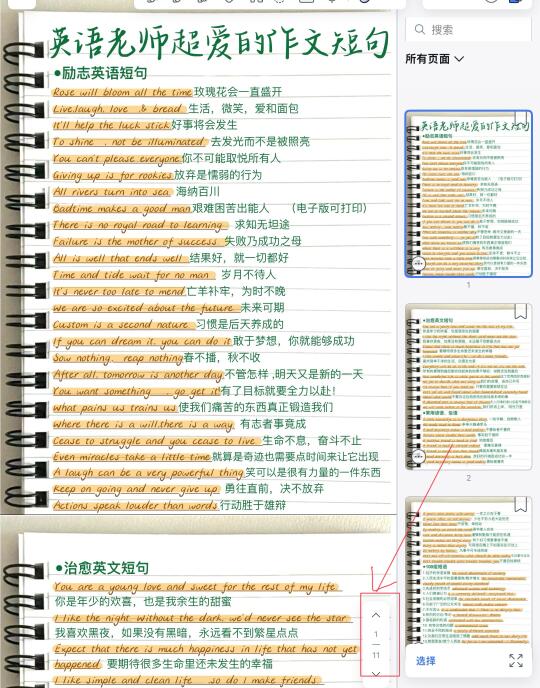 搜索
所有页面
英语老师超爱的作文短句
●励志英语短句
Rose will bloom all the time 玫瑰花会一直盛开
Live.laugh. love & bread 生活，微笑，爱和面包
It'll help the luck stick 好事将会发生
To shine , not be illuminated 去发光而不是被照亮
You can't please everyone 你不可能取悦所有人
Giving up is for rookies 放弃是懦弱的行为
All rivers turn into sea 海纳百川
Badtime makes a good man 艰难困苦出能人 （电子版可打印）
There is no royal road to learning 求知无坦途
Failure is the mother of success 失败乃成功之母
All is well that ends well 结果好，就一切都好
Time and tide wait for no man 岁月不待人
It's never too late to mend 亡羊补牢，为时不晚
We are so excited about the future 未来可期
Custom is a second nature 习惯是后天养成的
If you can dream it. you can do it 敢于梦想，你就能够成功
Sow nothing, reap nothing 春不播，秋不收
After all. tomorrow is another day 不管怎样,明天又是新的一天
You want something go get it 有了目标就要全力以赴！
what pains us trains us 使我们痛苦的东西真正锻造我们
where there is a will.there is a way 有志者事竟成
Cease to struggle and you cease to live 生命不息，奋斗不止
Even miracles take a little time 就算是奇迹也需要点时间来让它出现
A laugh can be a very powerful thing 笑可以是很有力量的一件东西
Keep on going and never give up 勇往直前，决不放弃
Actions speak louder than words 行动胜于雄辩
●治愈英文短句
You are a young love and sweet for the rest of my life
你是年少的欢喜，也是我余生的甜蜜
I like the night Without the dark. we'd never see the star
我喜欢黑夜，如果没有黑暗，永远看不到繁星点点
Expect that there is much happiness in life that has not yet
happened 要期待很多生命里还未发生的幸福
I like simple and clean life so do I make friends
1
11
1
2
选择